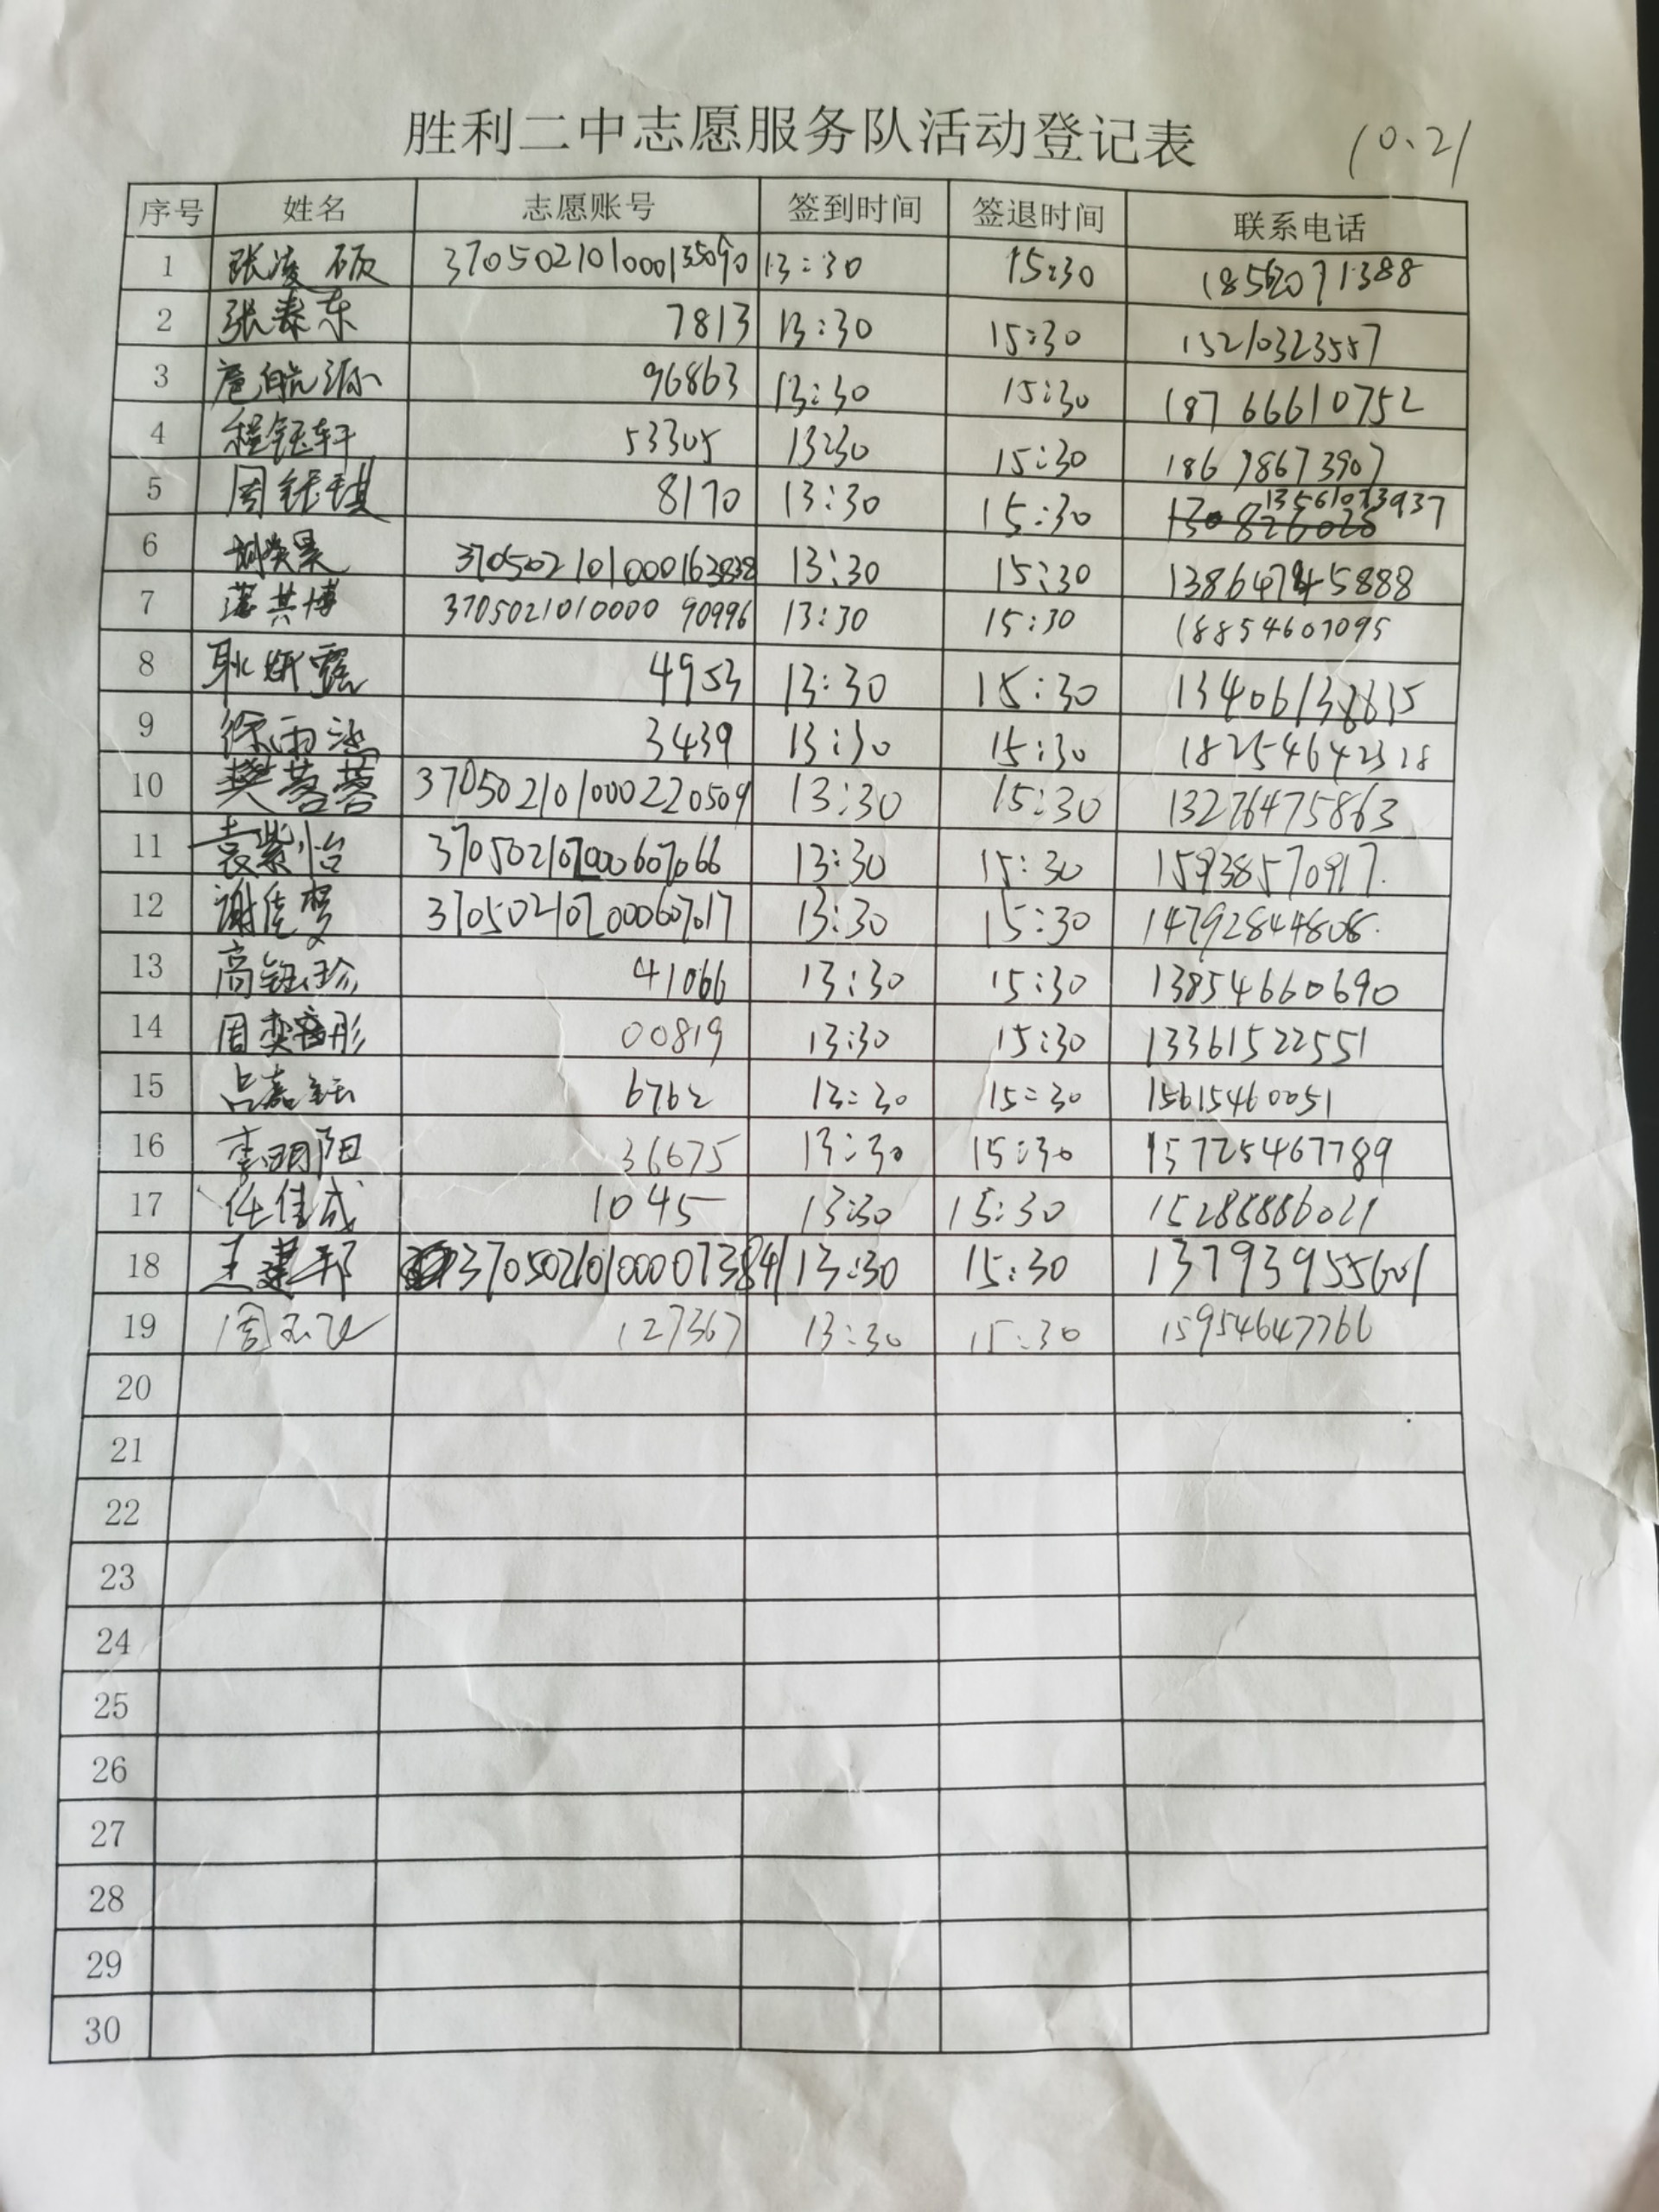 胜利二中志愿服务队活动登记表 10.21
序号 姓名 志愿账号 签到时间 签退时间 联系电话
1 张凌硕 370502101000135090 13:30 15:30
2 张泰东 7813 13:30 15:30 15210323557
3 扈航源 96863 13:30 15:30 18766610752
4 程钰轩 53305 13:30 15:30 18678673907
5 周钰琪 8170 13:30 15:30 13561073937
6 370502101000163838 13:30 15:30
7 370502101000090996 13:30 15:30 18854607095
8 耿妍露 4953 13:30 15:30 13406138635
9 徐雨涵 3439 13:30 15:30 18254642328
10 樊蓉蓉 370502101000220509 13:30 15:30 13276475863
11 袁紫怡 13:30 15:30 15938570917.
12 谢佳梦 13:30 15:30 14792844808.
13 高钰珍 41066 13:30 15:30 13854660690
14 周奕彤 00819 13:30 15:30 13361522551
15 吕嘉钰 6762 13:30 15:30 15615460051
16 李明阳 36675 13:30 15:30 157725467789
17 任佳成 1045 13:30 15:30 15288886021
18 王建邦 370502101000073841 13:30 15:30
19 周 127367 13:30 15:30 15954647766
20
21
22
23
24
25
26
27
28
29
30